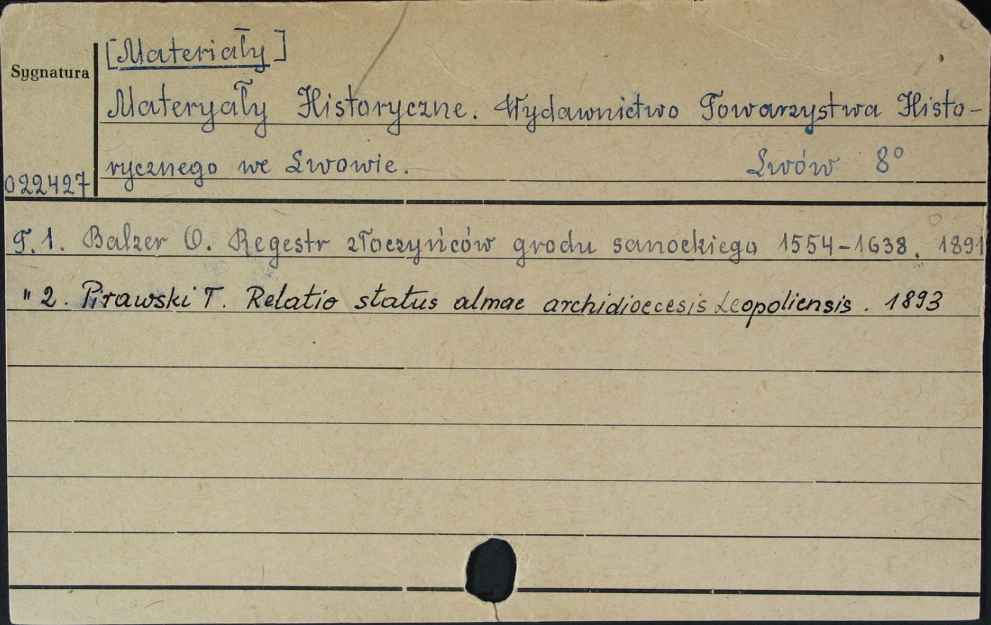 [Materiały]
Sygnatura
Materyały Historyczne. Wydawnictwo Towarzystwa Histo-
rycznego we Lwowie. Lwów 8°
022427
T. 1. Balzer O. Regestr złoczyńców grodu sanockiego 1554-1638. 1891
" 2. Pirawski T. Relatio status almae archidioecesis Leopoliensis. 1893